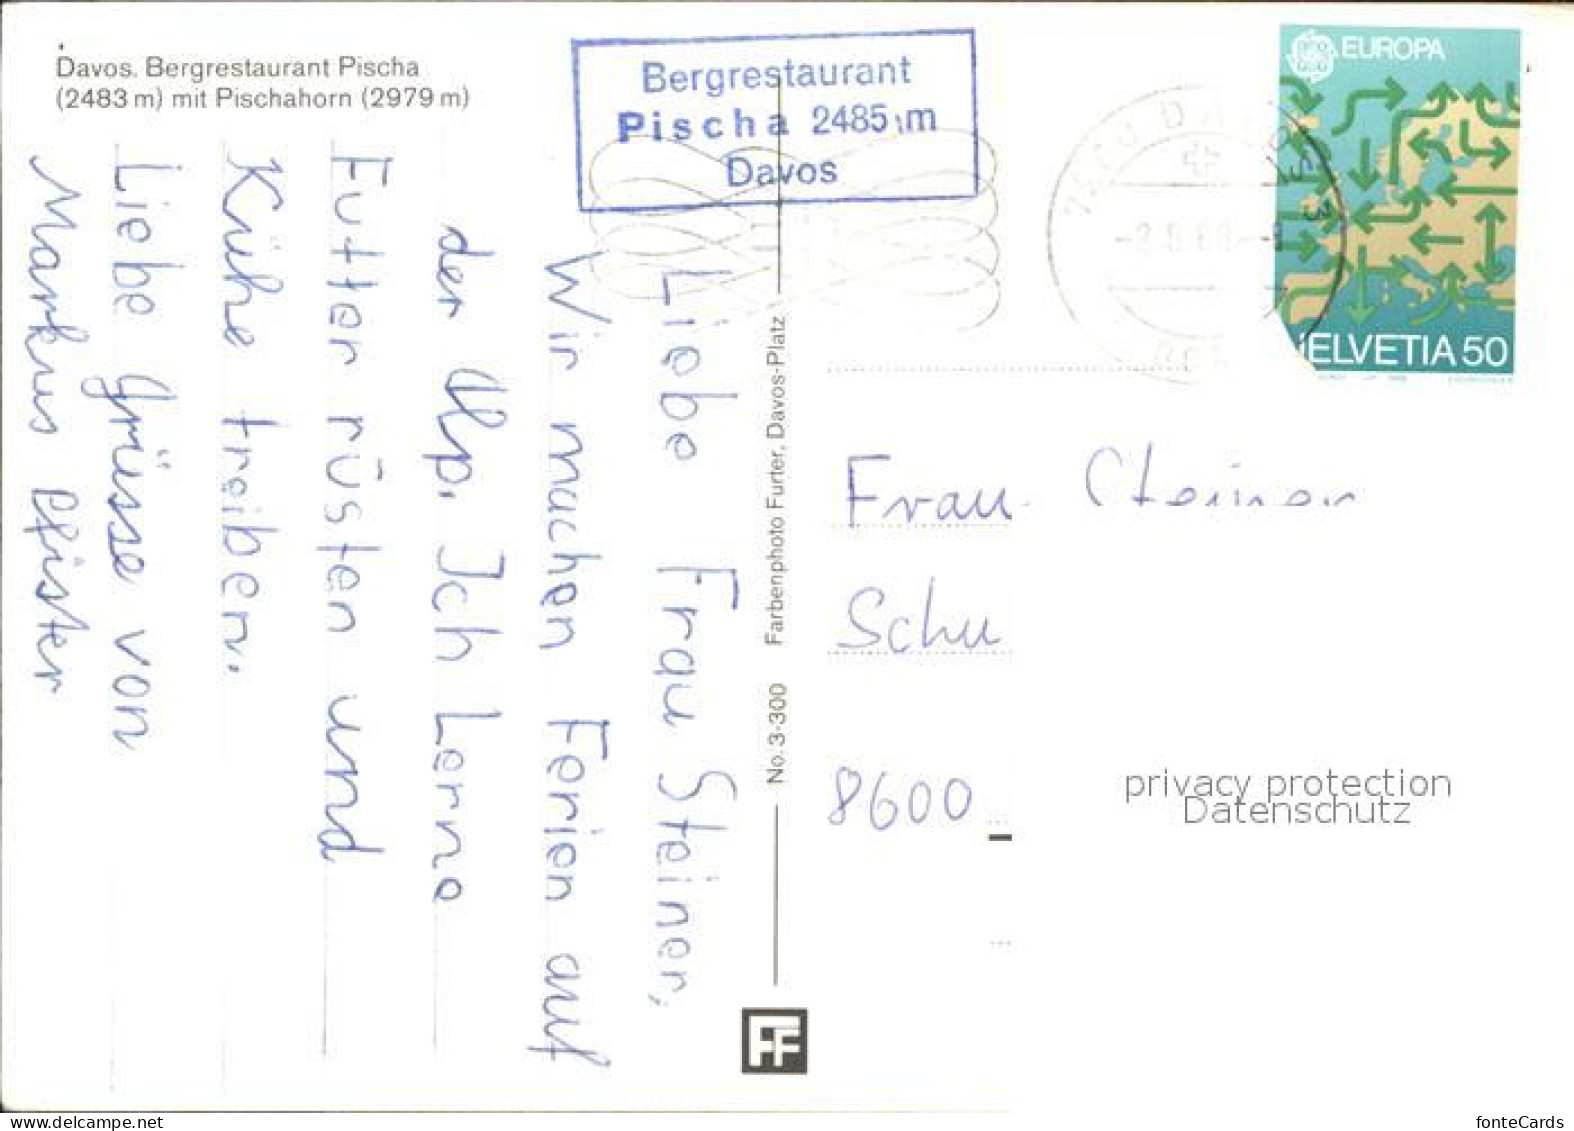 Davos. Bergrestaurant Pischa
(2483 m) mit Pischahorn (2979 m)
Bergrestaurant
Pischa 2485 m
Davos
EUROPA
HELVETIA 50
Liebe Frau Steiner,
Wir machen Ferien auf
der Alp. Ich Lerne
Futter rüsten und
Kühe treiben.
Liebe Grüsse von
Markus Pfister
No. 3-300 Farbenphoto Furter, Davos-Platz
FF
Frau Steiner
Schu
8600
privacy protection
Datenschutz
www.delcampe.net
fonteCards